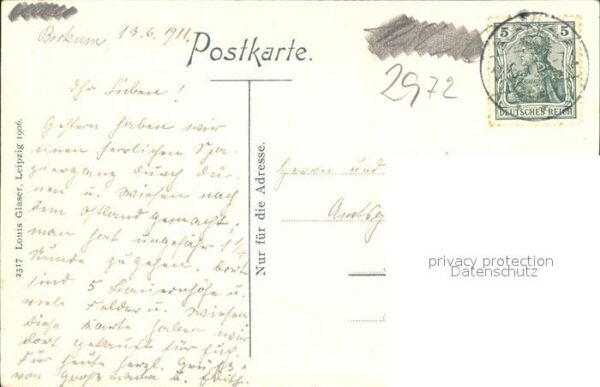 Borkum, 13.6.1911.
Postkarte.
2972
5 5
DEUTSCHES REICH
Ihr Lieben!
Gestern haben wir
einen herrlichen Spa-
ziergang durch Dü-
nen u. Wiesen nach
dem Ostland gemacht,
man hat ungefähr 1¼
Stunde zu gehen. Dort
sind 5 Bauernhöfe u.
viele Felder u. Wiesen
diese Karte haben wir
dort gekauft für Euch.
Für heute herzl. Grüße
von Großmama u. Edith.
2317 Louis Glaser, Leipzig 1906.
Nur für die Adresse.
Herrn und
Amtsg
privacy protection
Datenschutz